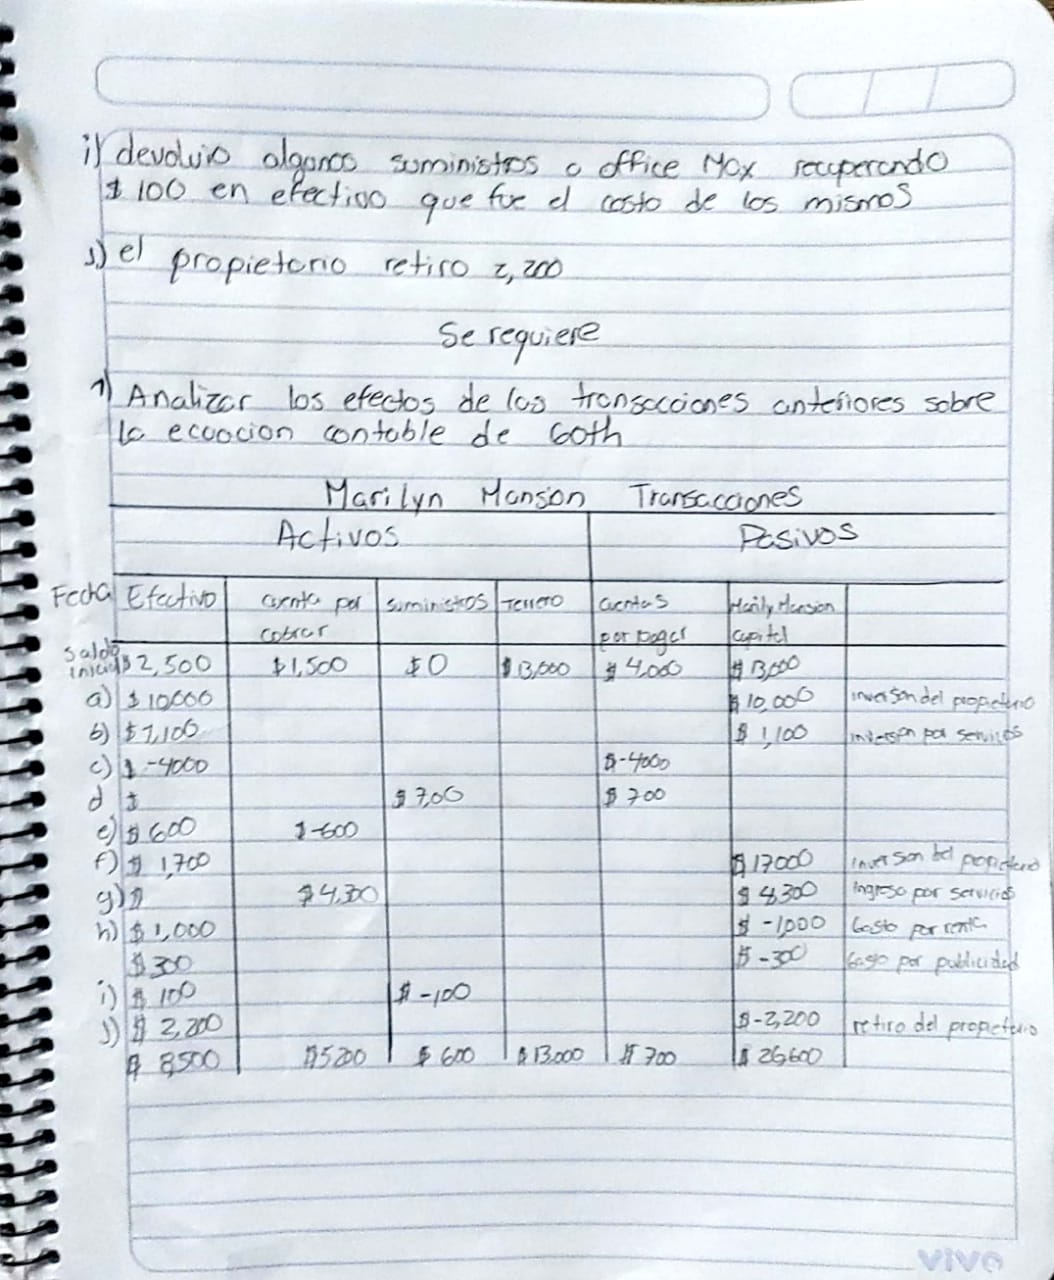 i) devolvio algunos suministros a office Max recuperando
$100 en efectivo que fue el costo de los mismos
j) el propietario retiro 2,200
Se requiere
1) Analizar los efectos de las transacciones anteriores sobre
la ecuacion contable de Goth
Marilyn Manson Transacciones
Activos Pasivos
Fecha Efectivo cuenta por cobrar suministros Terreno cuentas por pagar Marily Mansion capital
saldo inicial $2,500 $1,500 $0 $13,000 $4,000 $13,000
a) $10,000 $10,000 inversion del propietario
b) $1,100 $1,100 inversion por servicios
c) $-4000 $-4000
d $ $700 $700
e) $600 $-600
f) $1,700 $17000 inversion del propietario
g) $ $4,300 $4,300 Ingreso por servicios
h) $1,000 $-1,000 Gasto por renta
$300 $-300 Gasto por publicidad
i) $100 $-100
j) $2,200 $-2,200 retiro del propietario
$8,500 $5200 $600 $13.000 $700 $26,600
vivo